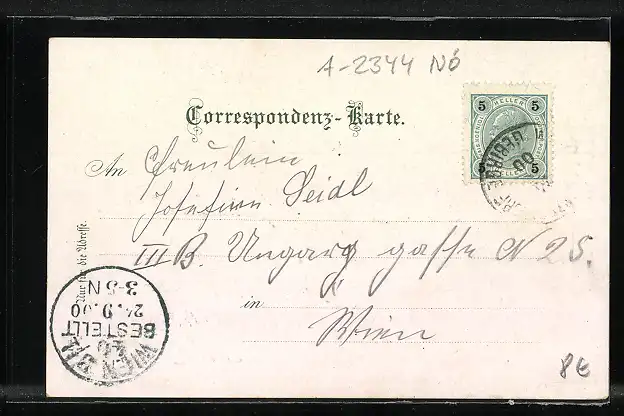 A-2344 NÖ
5 HELLER 5
5 5
Correspondenz-Karte.
An Fräulein
Josefine Seidl
III B. Ungargasse N 25.
in
Wien
Nur für die Adresse.
WIEN 3/1
BESTELLT
24.9.00
3-5N
00
8€